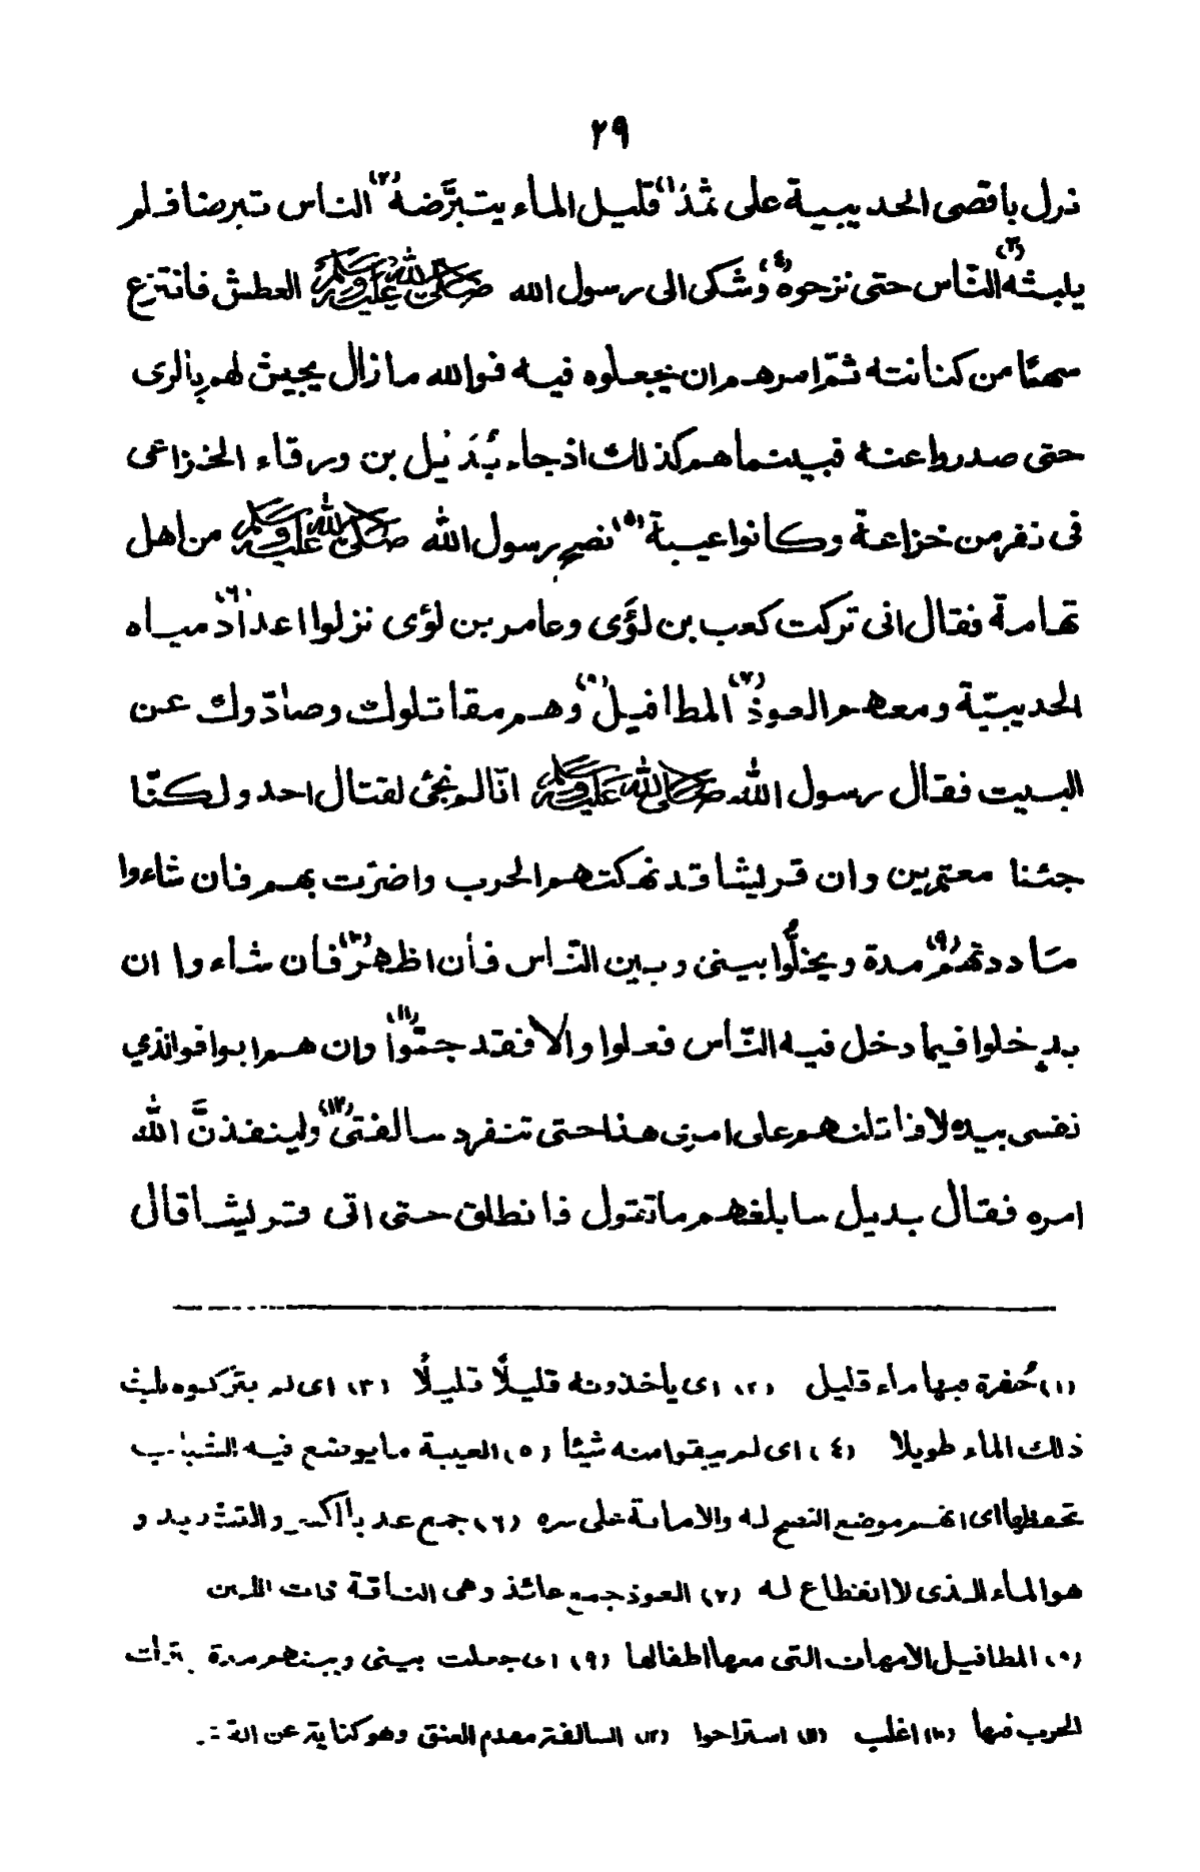 ٢٩
نزل باقصى الحديبية على ثمد(١) قليل الماء يتبرَّضه(٢) الناس تبرضا فلم
يلبثه(٣) النّاس حتى نزحوه(٤) وشكى الى رسول الله ﷺ العطش فانتزع
سهمًا من كنانته ثمّ امرهم ان يجعلوه فيه فوالله مازال يجيش لهم بالرى
حتى صدروا عنه فبينما هم كذلك اذ جاء بُدَيل بن ورقاء الخزاعى
فى نفر من خزاعة وكانوا عيبة(٥) نصح رسول الله ﷺ من اهل
تهامة فقال انى تركت كعب بن لؤَى وعامر بن لؤى نزلوا اعداد(٦) مياه
الحديبيّة ومعهم العوذ(٧) المطافيل(٨) وهم مقاتلوك وصادّوك عن
البيت فقال رسول الله ﷺ انّا لم نجئ لقتال احد ولكنّا
جئنا معتمرين وان قريشا قد نهكتهم الحرب واضرّت بهم فان شاءوا
ماددتهم(٩) مدة ويخلُّوا بينى وبين النّاس فان اظهر(١٠) فان شاءوا ان
يدخلوا فيما دخل فيه النّاس فعلوا والا فقد جمّوا(١١) وان هم ابوا فوالذي
نفسى بيده لاقاتلنهم على امرى هذا حتى تنفرد سالفتى(١٢) ولينفذنَّ الله
امره فقال بديل سابلغهم ماتقول فانطلق حتى اتى قريشا قال
(١) حُفرة فيها ماء قليل (٢) اى ياخذونه قليلًا قليلًا (٣) اى لم يتركوه يلبث
ذلك الماء طويلا (٤) اى لم يبقوا منه شئًا (٥) العيبة ما يوضع فيه الثياب
تحفظها اى انهم موضع النصح له والامانة على سره (٦) جمع عد بالكسر والتشديد و
هو الماء الذى لا انقطاع له (٧) العوذ جمع عائذ وهى الناقة ذات اللبن
(٨) المطافيل الامهات التى معها اطفالها (٩) اى جعلت بينى وبينهم مدة يترك
الحرب فيها (١٠) اغلب (١١) استراحوا (١٢) السالفة مقدم العنق وهو كناية عن القتل.